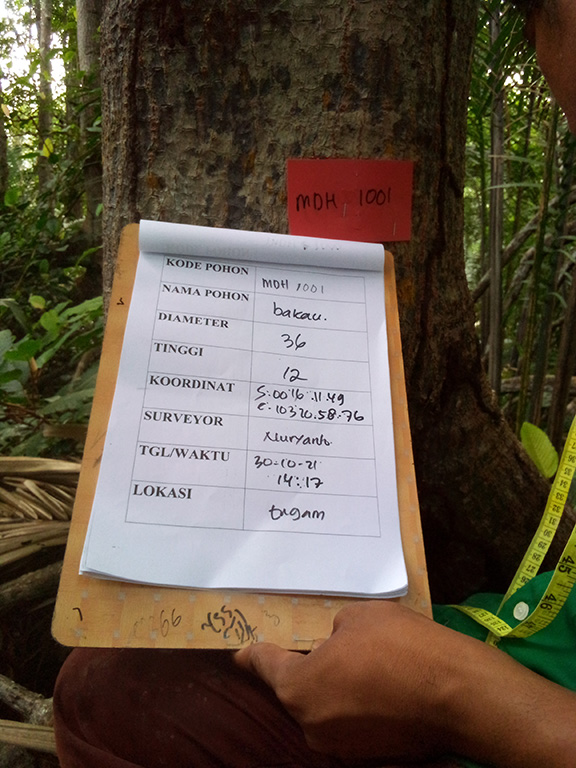 MDH 1001
KODE POHON MDH 1001
NAMA POHON bakau.
DIAMETER 36
TINGGI 12
KOORDINAT S:00 16.11.49
E:103 20.58.76
SURVEYOR Nuryanto
TGL/WAKTU 30-10-21
14:17
LOKASI tagam
66
45
46